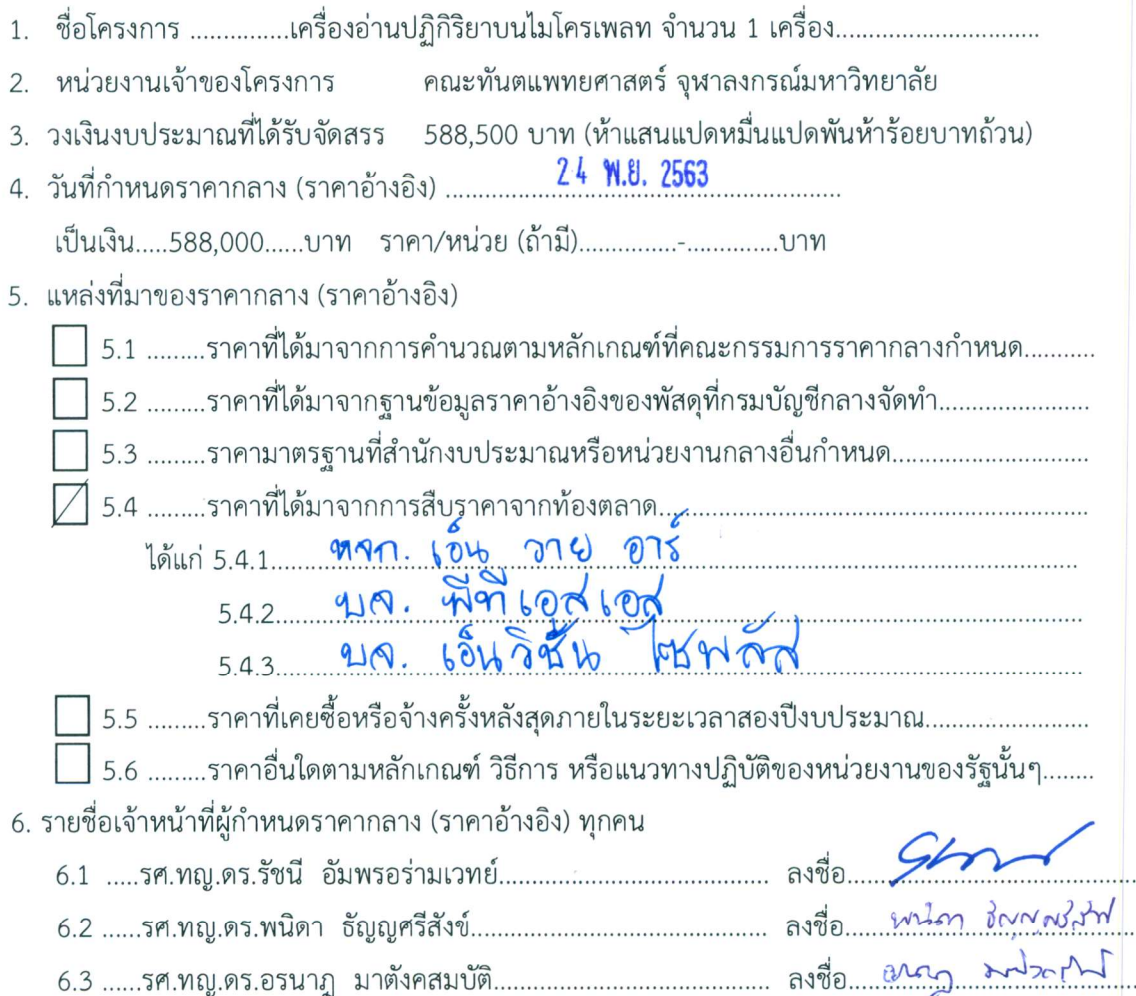 1. ชื่อโครงการ ...............เครื่องอ่านปฏิกิริยาบนไมโครเพลท จำนวน 1 เครื่อง...............................
2. หน่วยงานเจ้าของโครงการ คณะทันตแพทยศาสตร์ จุฬาลงกรณ์มหาวิทยาลัย
3. วงเงินงบประมาณที่ได้รับจัดสรร 588,500 บาท (ห้าแสนแปดหมื่นแปดพันห้าร้อยบาทถ้วน)
4. วันที่กำหนดราคากลาง (ราคาอ้างอิง) ............24 พ.ย. 2563............
เป็นเงิน.....588,000......บาท ราคา/หน่วย (ถ้ามี)...............-..............บาท
5. แหล่งที่มาของราคากลาง (ราคาอ้างอิง)
5.1 .........ราคาที่ได้มาจากการคำนวณตามหลักเกณฑ์ที่คณะกรรมการราคากลางกำหนด...........
5.2 .........ราคาที่ได้มาจากฐานข้อมูลราคาอ้างอิงของพัสดุที่กรมบัญชีกลางจัดทำ.......................
5.3 .........ราคามาตรฐานที่สำนักงบประมาณหรือหน่วยงานกลางอื่นกำหนด..............................
5.4 .........ราคาที่ได้มาจากการสืบราคาจากท้องตลาด.................................................................
ได้แก่ 5.4.1 หจก. เอ็น วาย อาร์
5.4.2 บจ. พีทีเอสเอส
5.4.3 บจ. เอ็นวิชั่น ไซพลัส
5.5 .........ราคาที่เคยซื้อหรือจ้างครั้งหลังสุดภายในระยะเวลาสองปีงบประมาณ.........................
5.6 .........ราคาอื่นใดตามหลักเกณฑ์ วิธีการ หรือแนวทางปฏิบัติของหน่วยงานของรัฐนั้นๆ........
6. รายชื่อเจ้าหน้าที่ผู้กำหนดราคากลาง (ราคาอ้างอิง) ทุกคน
6.1 .....รศ.ทญ.ดร.รัชนี อัมพรอร่ามเวทย์......................................... ลงชื่อ
6.2 ......รศ.ทญ.ดร.พนิดา ธัญญศรีสังข์............................................. ลงชื่อ พนิดา ธัญญศรีสังข์
6.3 ......รศ.ทญ.ดร.อรนาฏ มาตังคสมบัติ......................................... ลงชื่อ